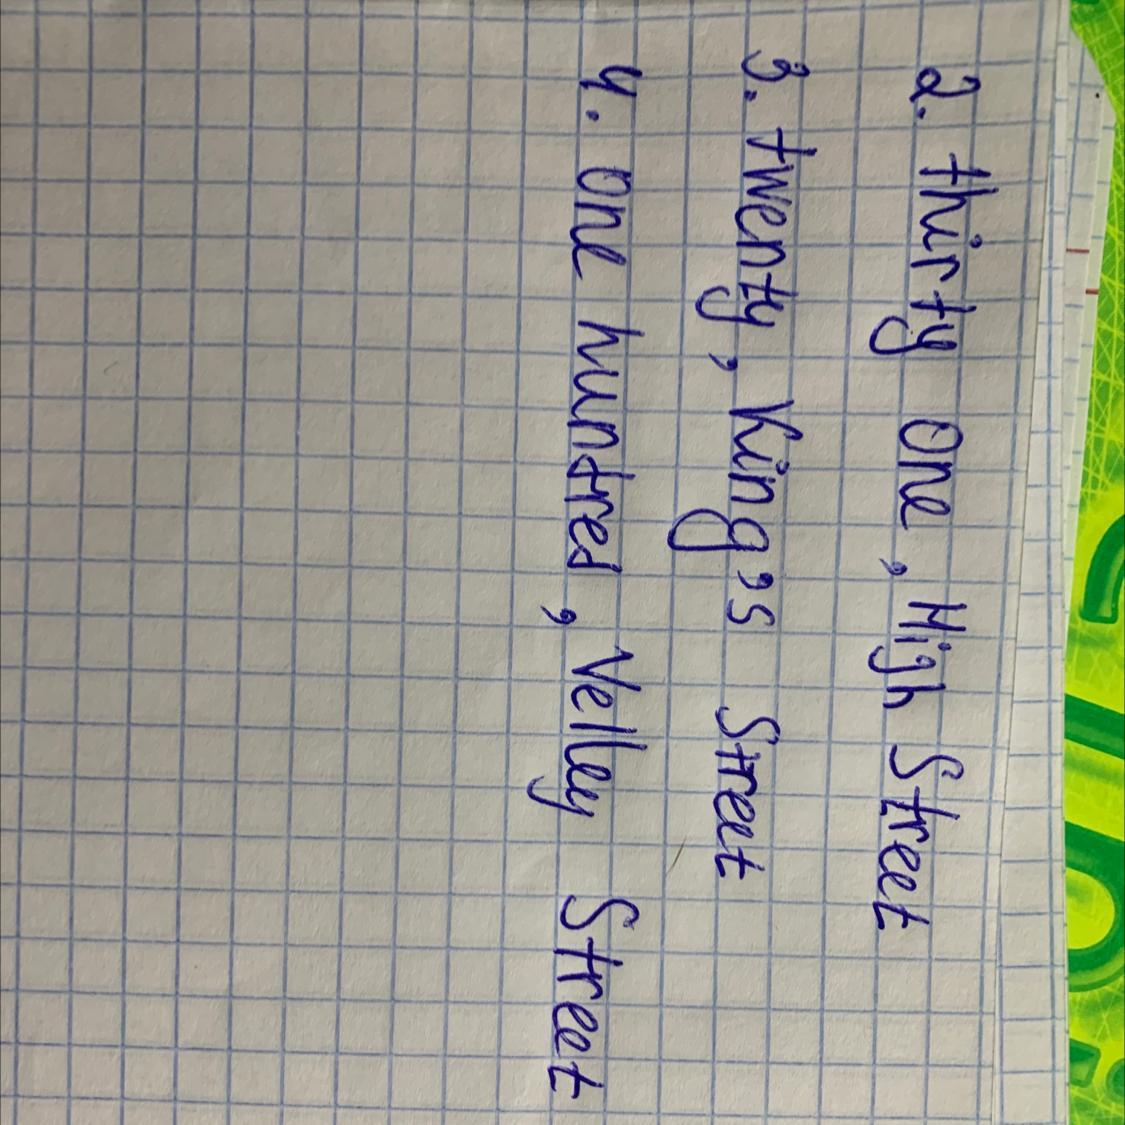 2. thirty One, High Street
3. twenty, King's Street
4. One huntred, Velley Street